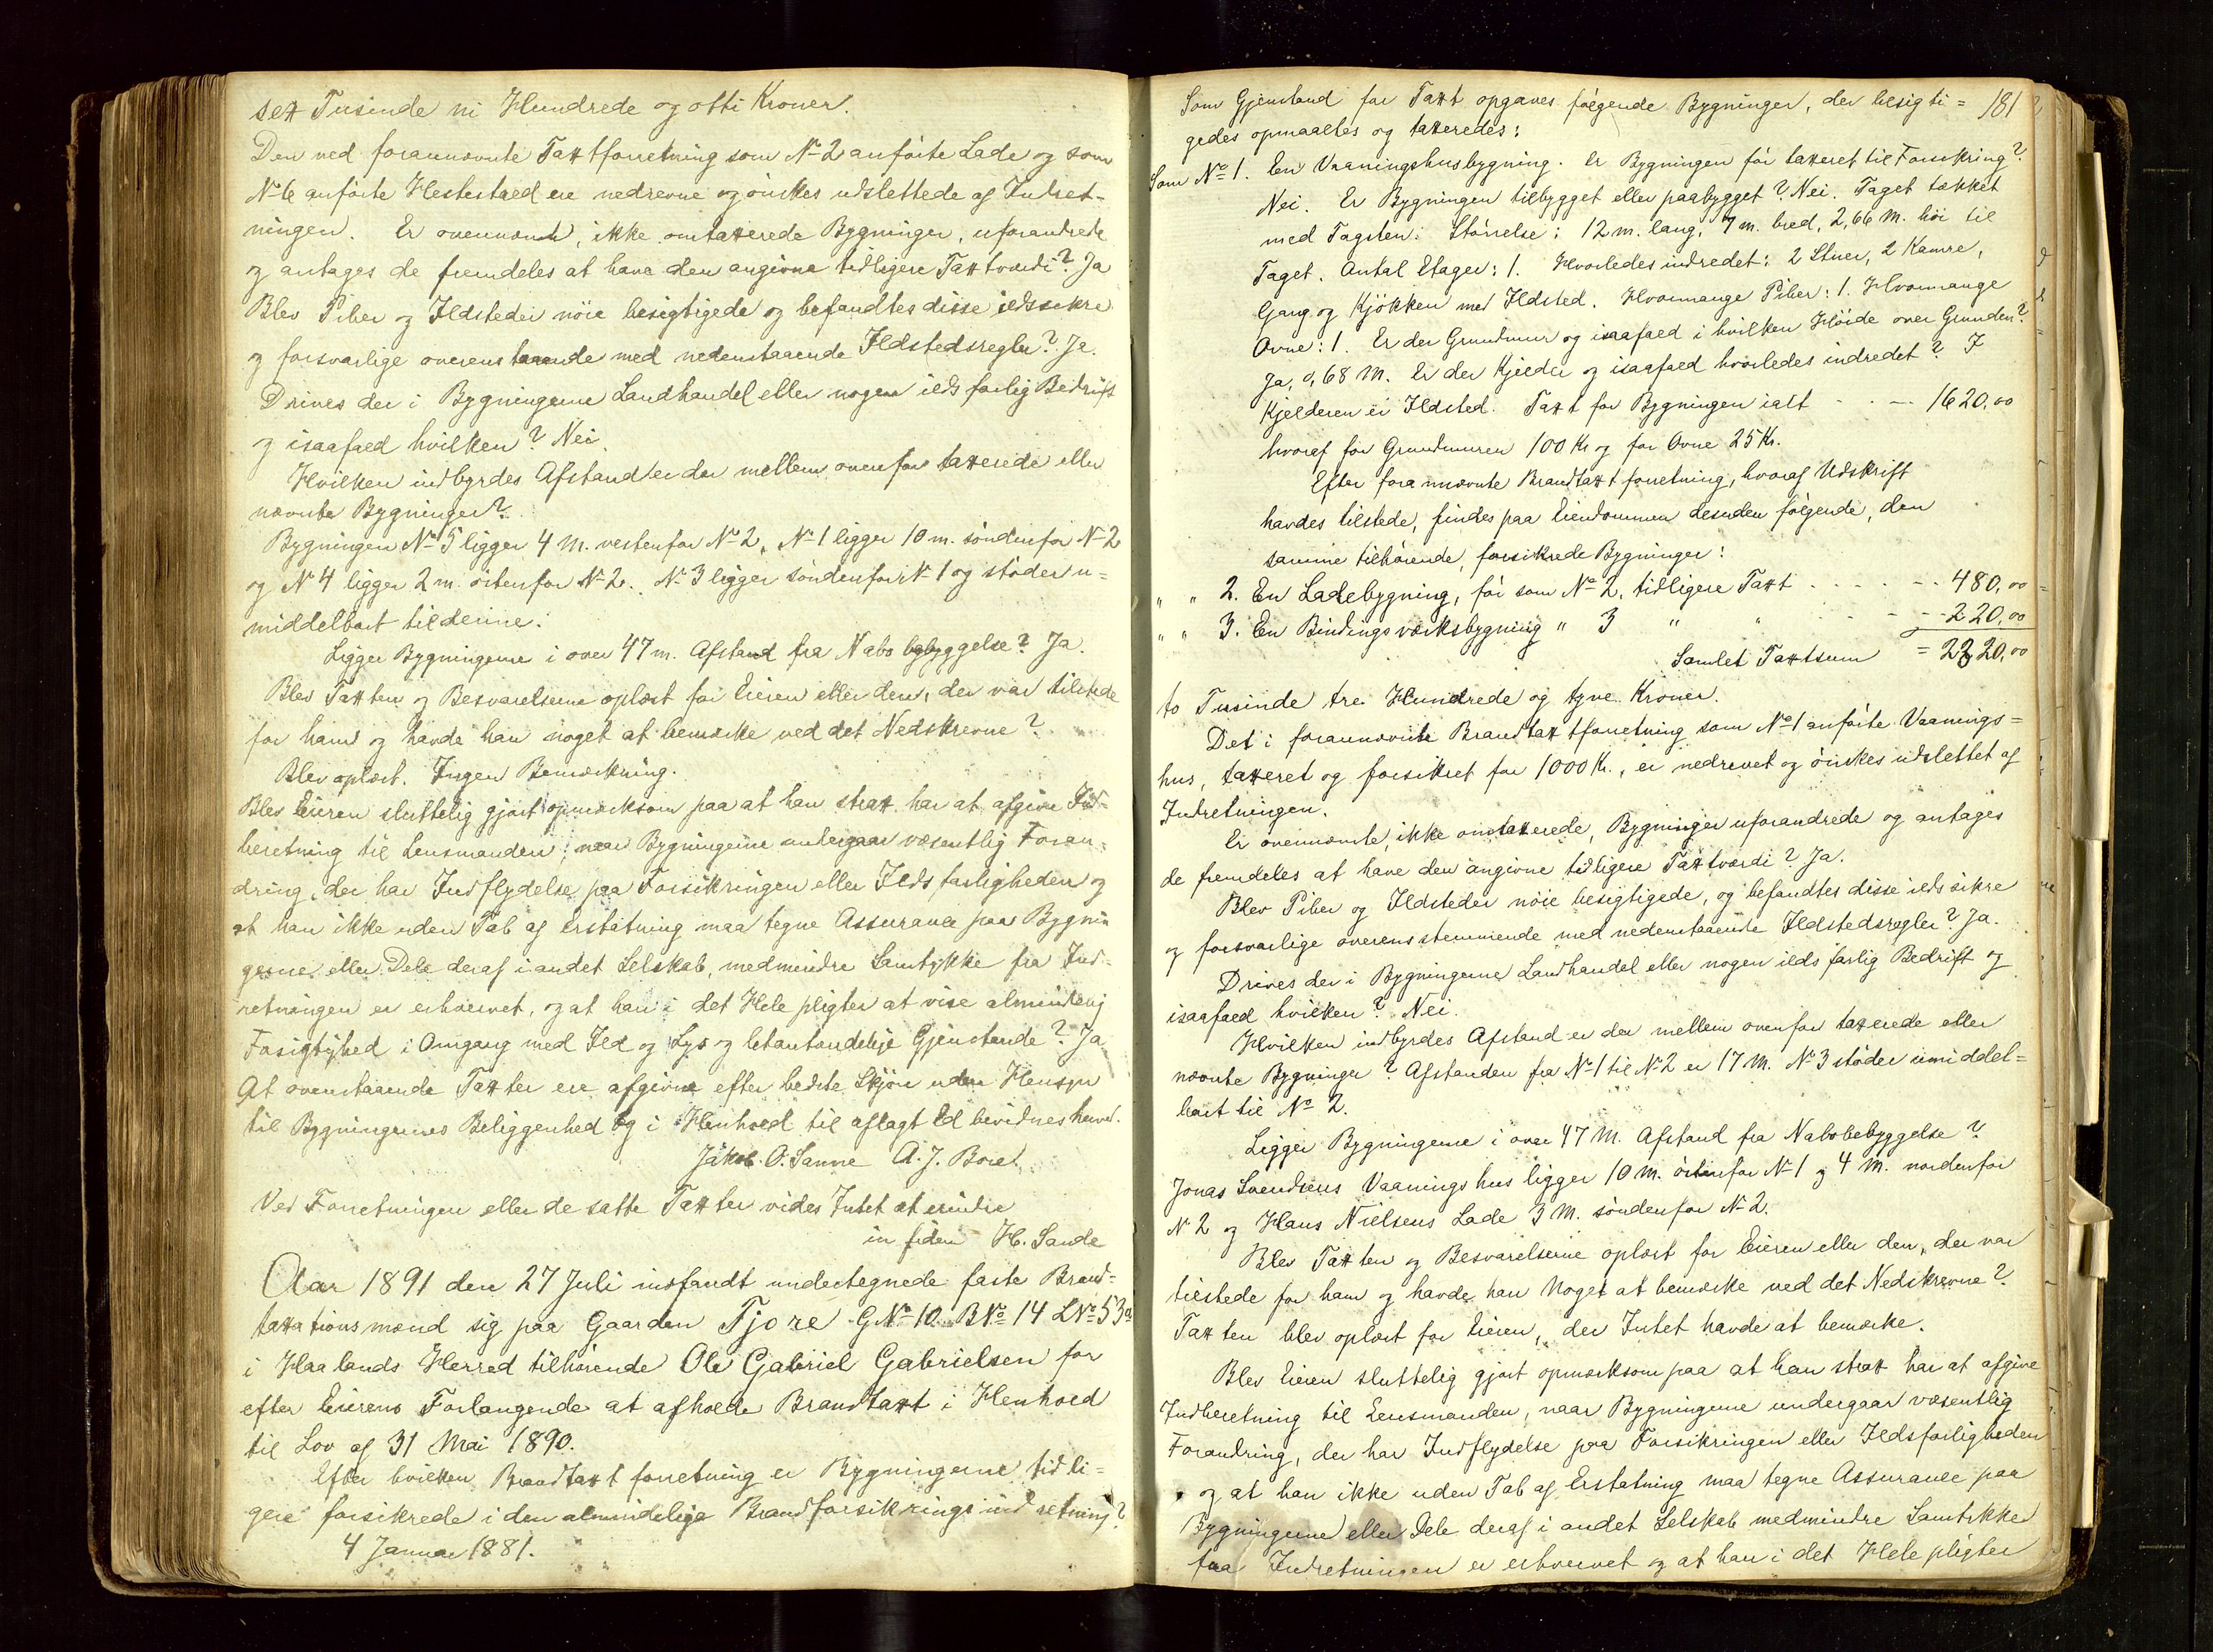 sex Tusinde ni Hundrede og otti Kroner.
Den ved forannævnte Taxtforretning som No 2 anførte Lade og som
No 6 anførte Hestestald ere nedrevne og ønskes udslettede af Indret-
ningen. Er ovennævnte, ikke omtaxerede Bygninger, uforandrede
og antages de fremdeles at have den angivne tidligere Taxtværdi? Ja
Blev Piber og Ildsteder nöie besigtigede og befandtes disse ildssikre
og forsvarlige overenstaaende med nedenstaaende Ildstedsregler? Ja.
Drives der i Bygningerne Landhandel eller nogen ildsfarlig Bedrift
og isaafald hvilken? Nei.
Hvilken indbyrdes Afstand er der mellem ovenfor taxerede eller
nævnte Bygninger?
Bygningen No 5 ligger 4 M. vestenfor No 2, No 1 ligger 10 m. söndenfor No 2
og No 4 ligger 2 m. östenfor No 2. No 3 ligger söndenfor No 1 og stöder u=
middelbart til denne.
Ligger Bygningerne i over 47 m. Afstand fra Nabobebyggelse? Ja.
Blev Taxten og Besvarelserne oplæst for Eieren eller den, der var tilstede
for ham og havde han noget at bemærke ved det Nedskrevne?
Blev oplæst. Ingen Bemærkning.
Blev Eieren sluttelig gjort opmærksom paa at han strax har at afgive Ind-
beretning til Lensmanden, naar Bygningerne undergaar væsentlig Foran-
dring, der har Indflydelse paa Forsikringen eller Ildsfarligheden og
at han ikke uden Tab af Erstatning maa tegne Assurance paa Bygnin
gerne eller Dele deraf i andet Selskab, medmindre Samtykke fra Ind-
retningen er erhvervet, og at han i det Hele pligter at vise almindelig
Forsigtighed i Omgang med Ild og Lys og letantændelige Gjenstande? Ja
At ovenstaaende Taxter ere afgivne efter bedste Skjön uden Hensyn
til Bygningernes Beliggenhed og i Henhold til aflagt Ed bevidnes herved.
Jakob. O. Sanne A. J. Bore.
Ved Forretningen eller de satte Taxter vides Intet at erindre
in fidem H. Sande
Aar 1891 den 27 Juli indfandt undertegnede faste Brand-
taxationsmænd sig paa Gaarden Tjore GNo 10 BNo 14 LNo 53a
i Haalands Herred tilhörende Ole Gabriel Gabrielsen for
efter Eierens Forlangende at afholde Brandtaxt i Henhold
til Lov af 31 Mai 1890.
Efter hvilken Brandtaxtforretning er Bygningerne tidli=
gere forsikrede i den almindelige Brandforsikringsindretning?
4 Januar 1881.
181
Som Gjenstand for Taxt opgaves fölgende Bygninger, der besigti=
gedes opmaaltes og taxeredes:
Som No 1. En Vaaningshusbygning. Er Bygningen för taxeret til Forsikring?
Nei. Er Bygningen tilbygget eller paabygget? Nei. Taget tækket
med Tagsten. Störrelse: 12 m. lang, 7 m. bred, 2,66 M. höi til
Taget. Antal Etager: 1. Hvorledes indredet: 2 Stuer, 2 Kamre,
Gang og Kjökken med Ildsted. Hvormange Piber: 1. Hvormange
Ovne: 1. Er der Grundmur og isaafald i hvilken Höide over Grunden?
Ja, 0,68 M. Er der Kjelder og isaafald hvorledes indredet? I
Kjelderen ei Ildsted. Taxt for Bygningen ialt - - - 1620,00
hvoraf for Grundmuren 100 Kr og for Ovne 25 Kr.
Efter forannævnte Brandtaxtforretning, hvoraf Udskrift
havdes tilstede, findes paa Eiendommen desuden fölgende, den
samme tilhörende, forsikrede Bygninger:
" " 2. En Ladebygning, för som No 2, tidligere Taxt - - - 480,00
" " 3. En Bindingsværksbygning " 3 " " - - - 220,00
Samlet Taxtsum = 2320,00
to Tusinde tre Hundrede og tyve Kroner.
Det i forannævnte Brandtaxtforretning som No 1 anförte Vaanings=
hus, taxeret og forsikret for 1000 Kr., er nedrevet og önskes udslettet af
Indretningen.
Er ovennævnte, ikke omtaxerede, Bygninger uforandrede og antages
de fremdeles at have den angivne tidligere Taxtværdi? Ja.
Blev Piber og Ildsteder nöie besigtigede, og befandtes disse ildssikre
og forsvarlige overensstemmende med nedenstaaende Ildstedsregler? Ja.
Drives der i Bygningerne Landhandel eller nogen ildsfarlig Bedrift og
isaafald hvilken? Nei.
Hvilken indbyrdes Afstand er der mellem ovenfor taxerede eller
nævnte Bygninger? Afstanden fra No 1 til No 2 er 17 M. No 3 stöder umiddel=
bart til No 2.
Ligger Bygningerne i over 47 M. Afstand fra Nabobebyggelse?
Jonas Svendsens Vaaningshus ligger 10 M. östenfor No 1 og 4 M. nordenfor
No 2 og Hans Nielsens Lade 3 M. söndenfor No 2.
Blev Taxten og Besvarelserne oplæst for Eieren eller den, der var
tilstede for ham og havde han Noget at bemærke ved det Nedskrevne?
Taxten blev oplæst for Eieren, der Intet havde at bemærke.
Blev Eieren sluttelig gjort opmærksom paa at han strax har at afgive
Indberetning til Lensmanden, naar Bygningerne undergaar væsentlig
Forandring, der har Indflydelse paa Forsikringen eller Ildsfarligheden
og at han ikke uden Tab af Erstatning maa tegne Assurance paa
Bygningerne eller Dele deraf i andet Selskab medmindre Samtykke
fra Indretningen er erhvervet og at han i det Hele pligter